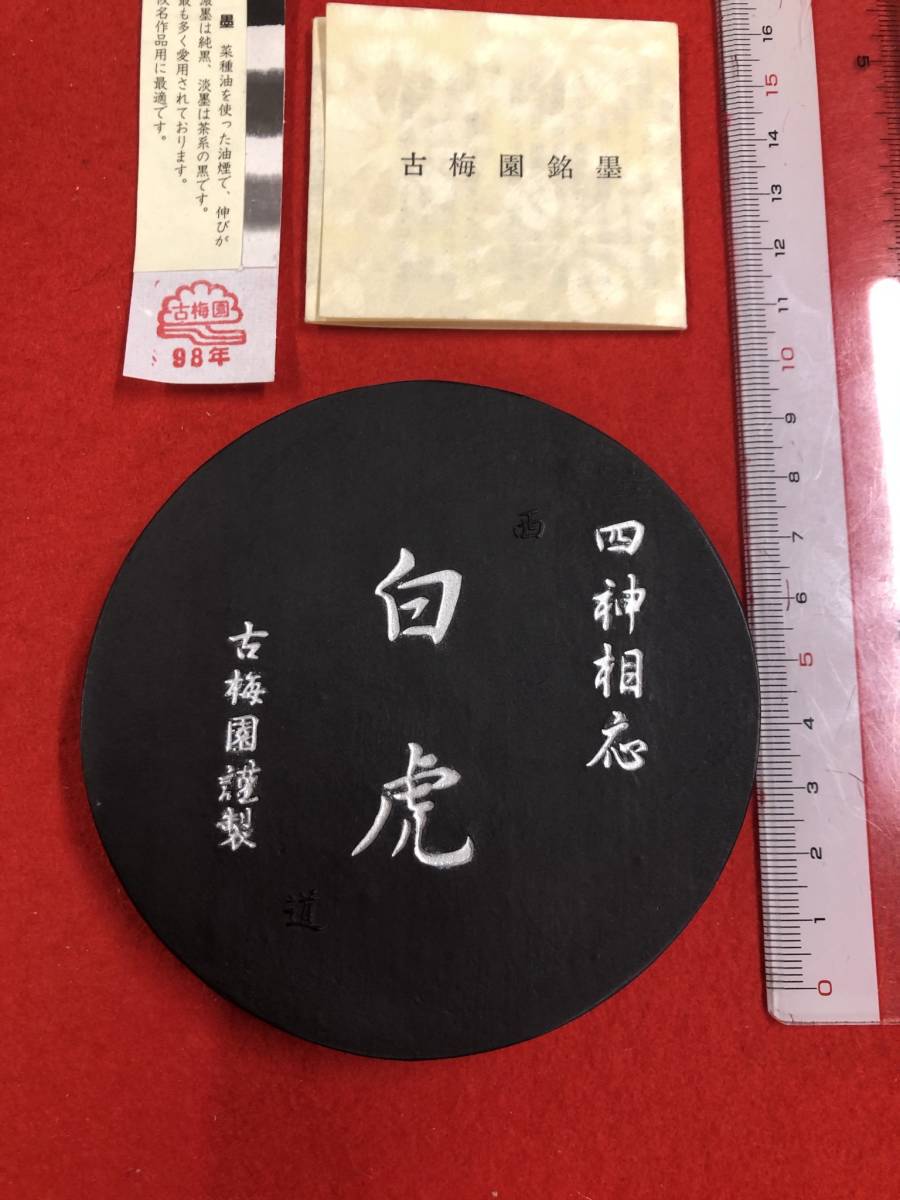 墨 菜種油を使った油煙で、伸びが
濃墨は純黒、淡墨は茶系の黒です。
最も多く愛用されております。
仮名作品用に最適です。
古梅園
98年
古梅園銘墨
四神相応
西
白虎
道
古梅園謹製
16
15
14
13
12
11
10
9
8
7
6
5
4
3
2
1
0
5